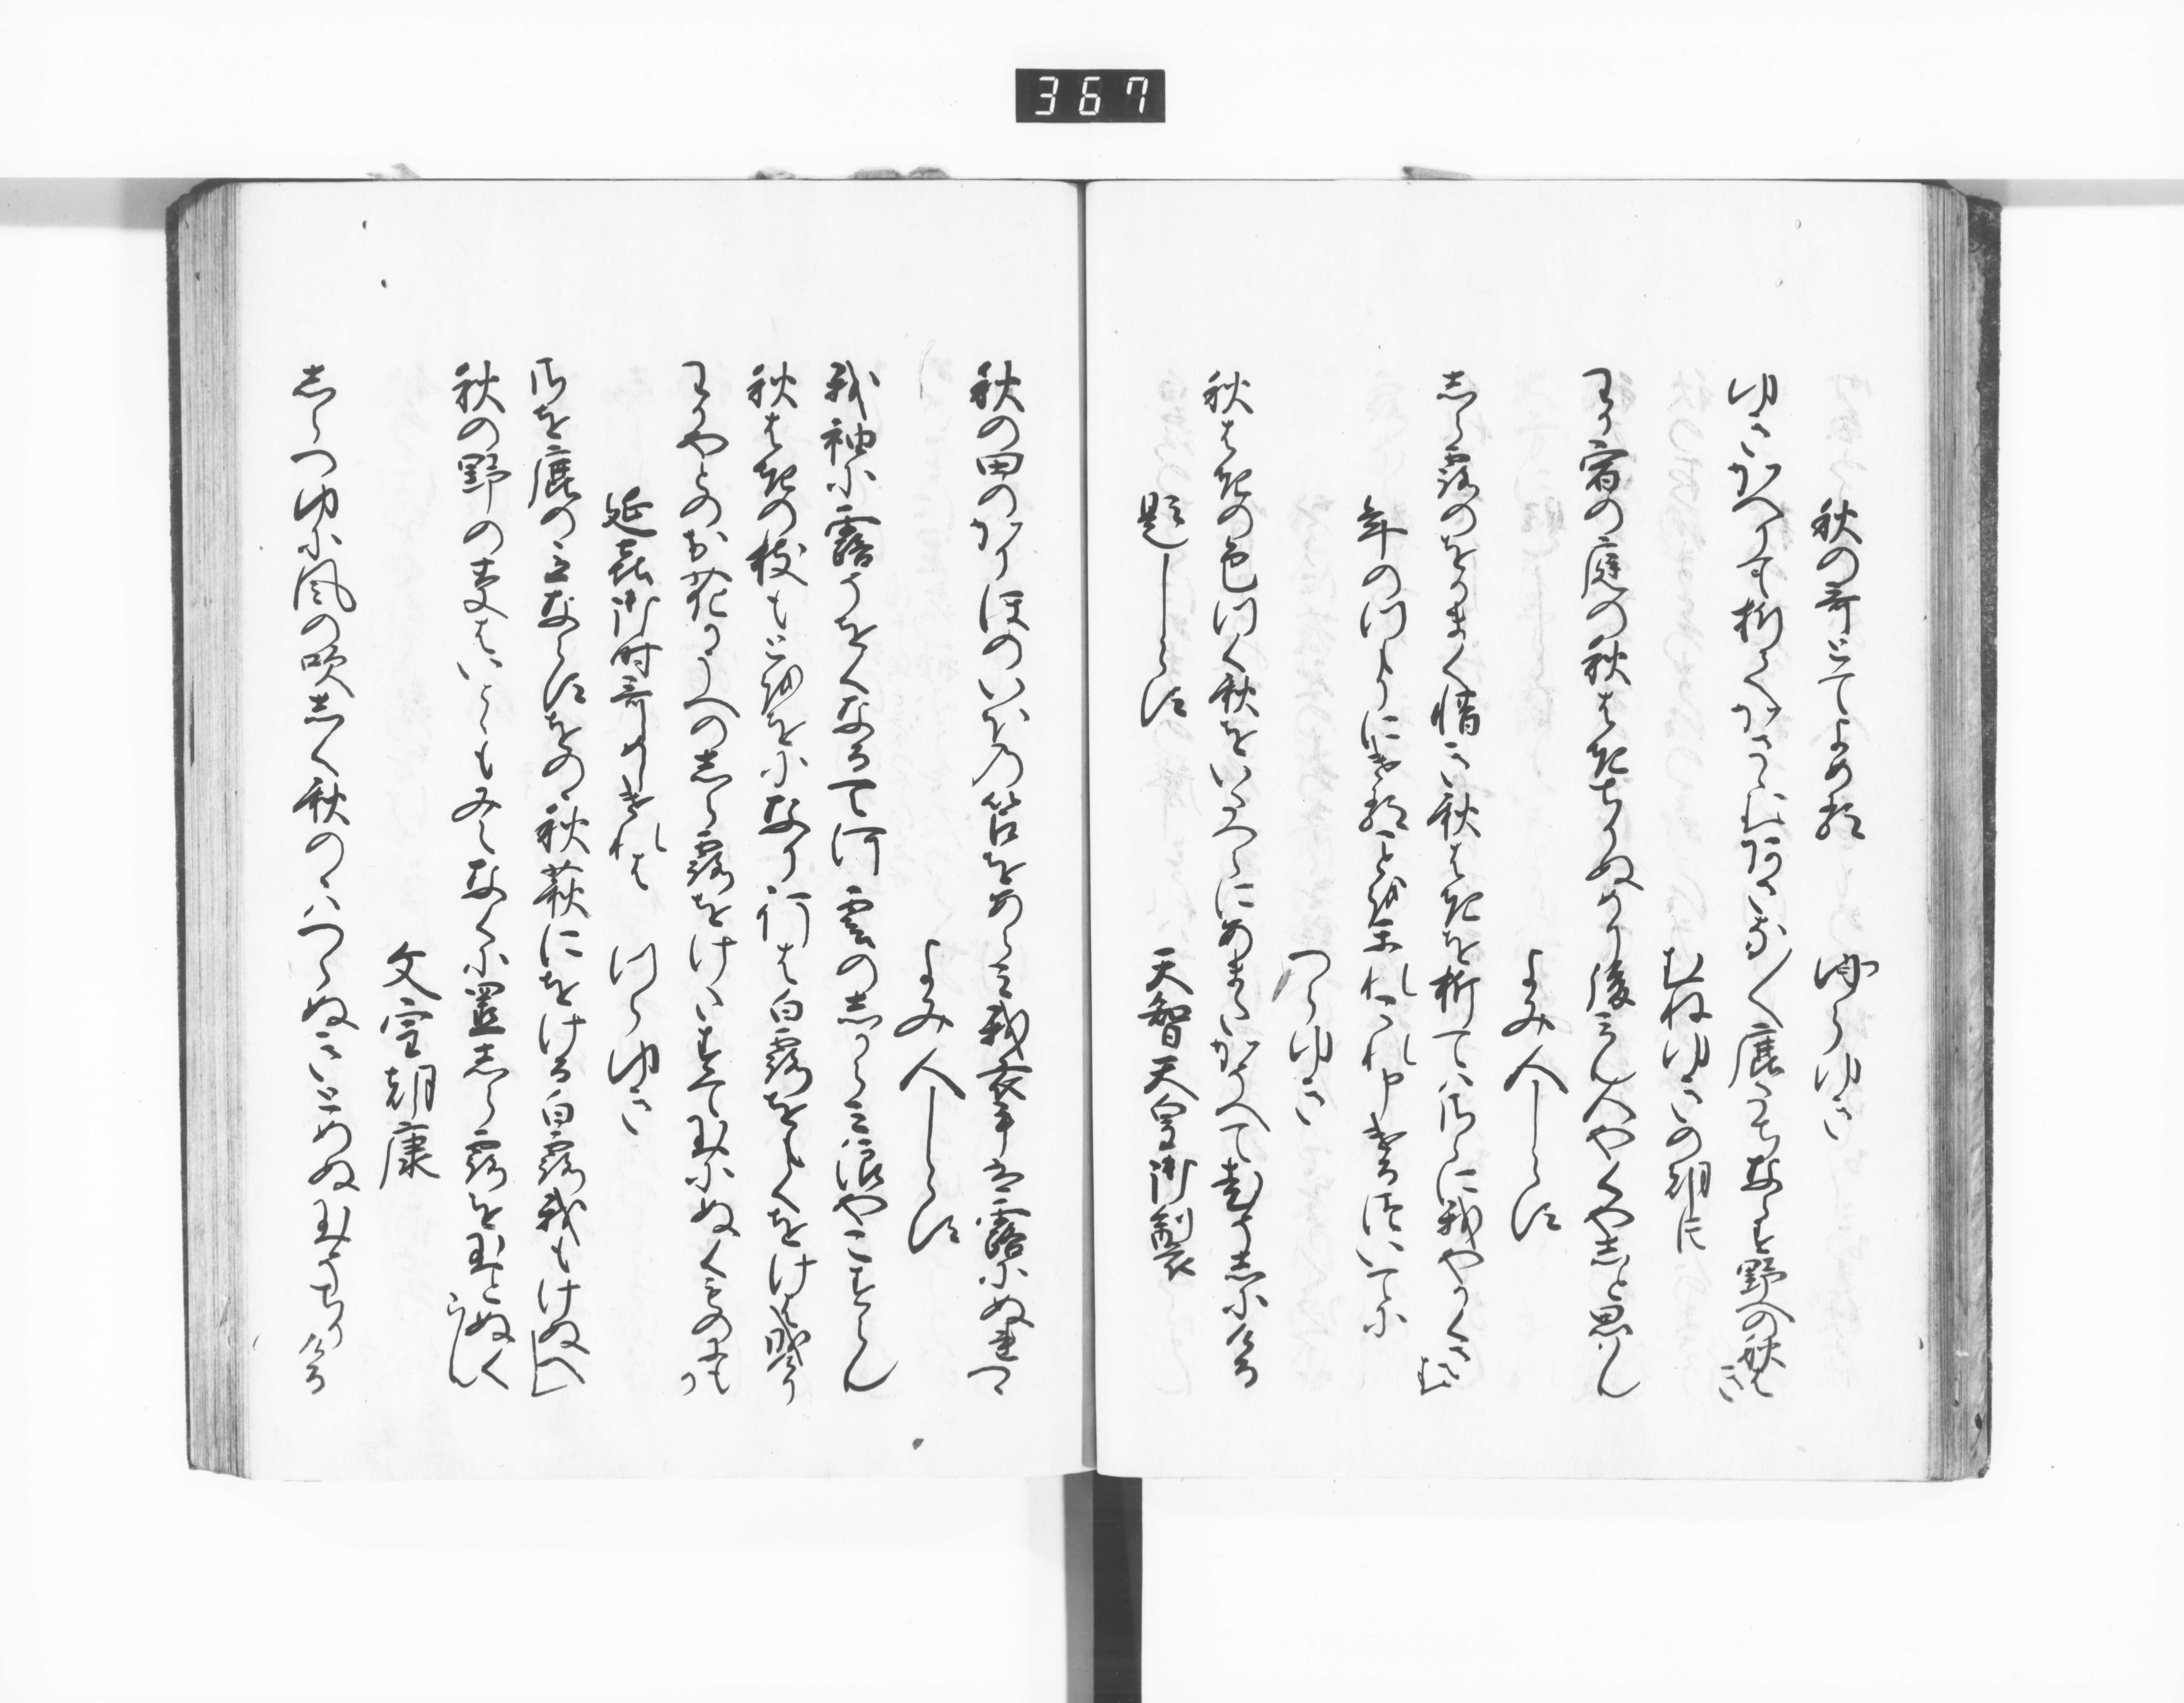 367
秋の哥とてよめる　つらゆき
ゆきかへり折てかさゝむ朝な／＼鹿立ならす野への秋はき
むねゆきの朝臣
わか宿の庭の秋はきちりぬめり後みん人やくやしと思はん
よみ人しらす
しら露のをかまく惜き秋はきを折てはさらに我やかくさむ
年のつもりにけることをかれこれ申けるついてに
つらゆき
秋はきの色つく秋をいたつらにあまたかそへて老そしにける
題しらす　天智天皇御製
秋の田のかりほのいほの笘をあらみ我衣手は露にぬれつゝ
よみ人しらす
我袖に露そをくなる天河雲のしからみ浪やこすらん
秋はきの枝もとをゝになり行は白露をもくをけは成けり
わかやとのお花かうへのしら露をけたすて玉にぬくものにもか
延喜御時哥めしけれは　つらゆき
さを鹿の立ならすをのゝ秋萩にをける白露我もけぬへし
秋の野の草はいとゝもみえなくに置しら露を玉とぬくらん
文室朝康
しらつゆに風の吹しく秋のゝはつらぬきとめぬ玉そちりける